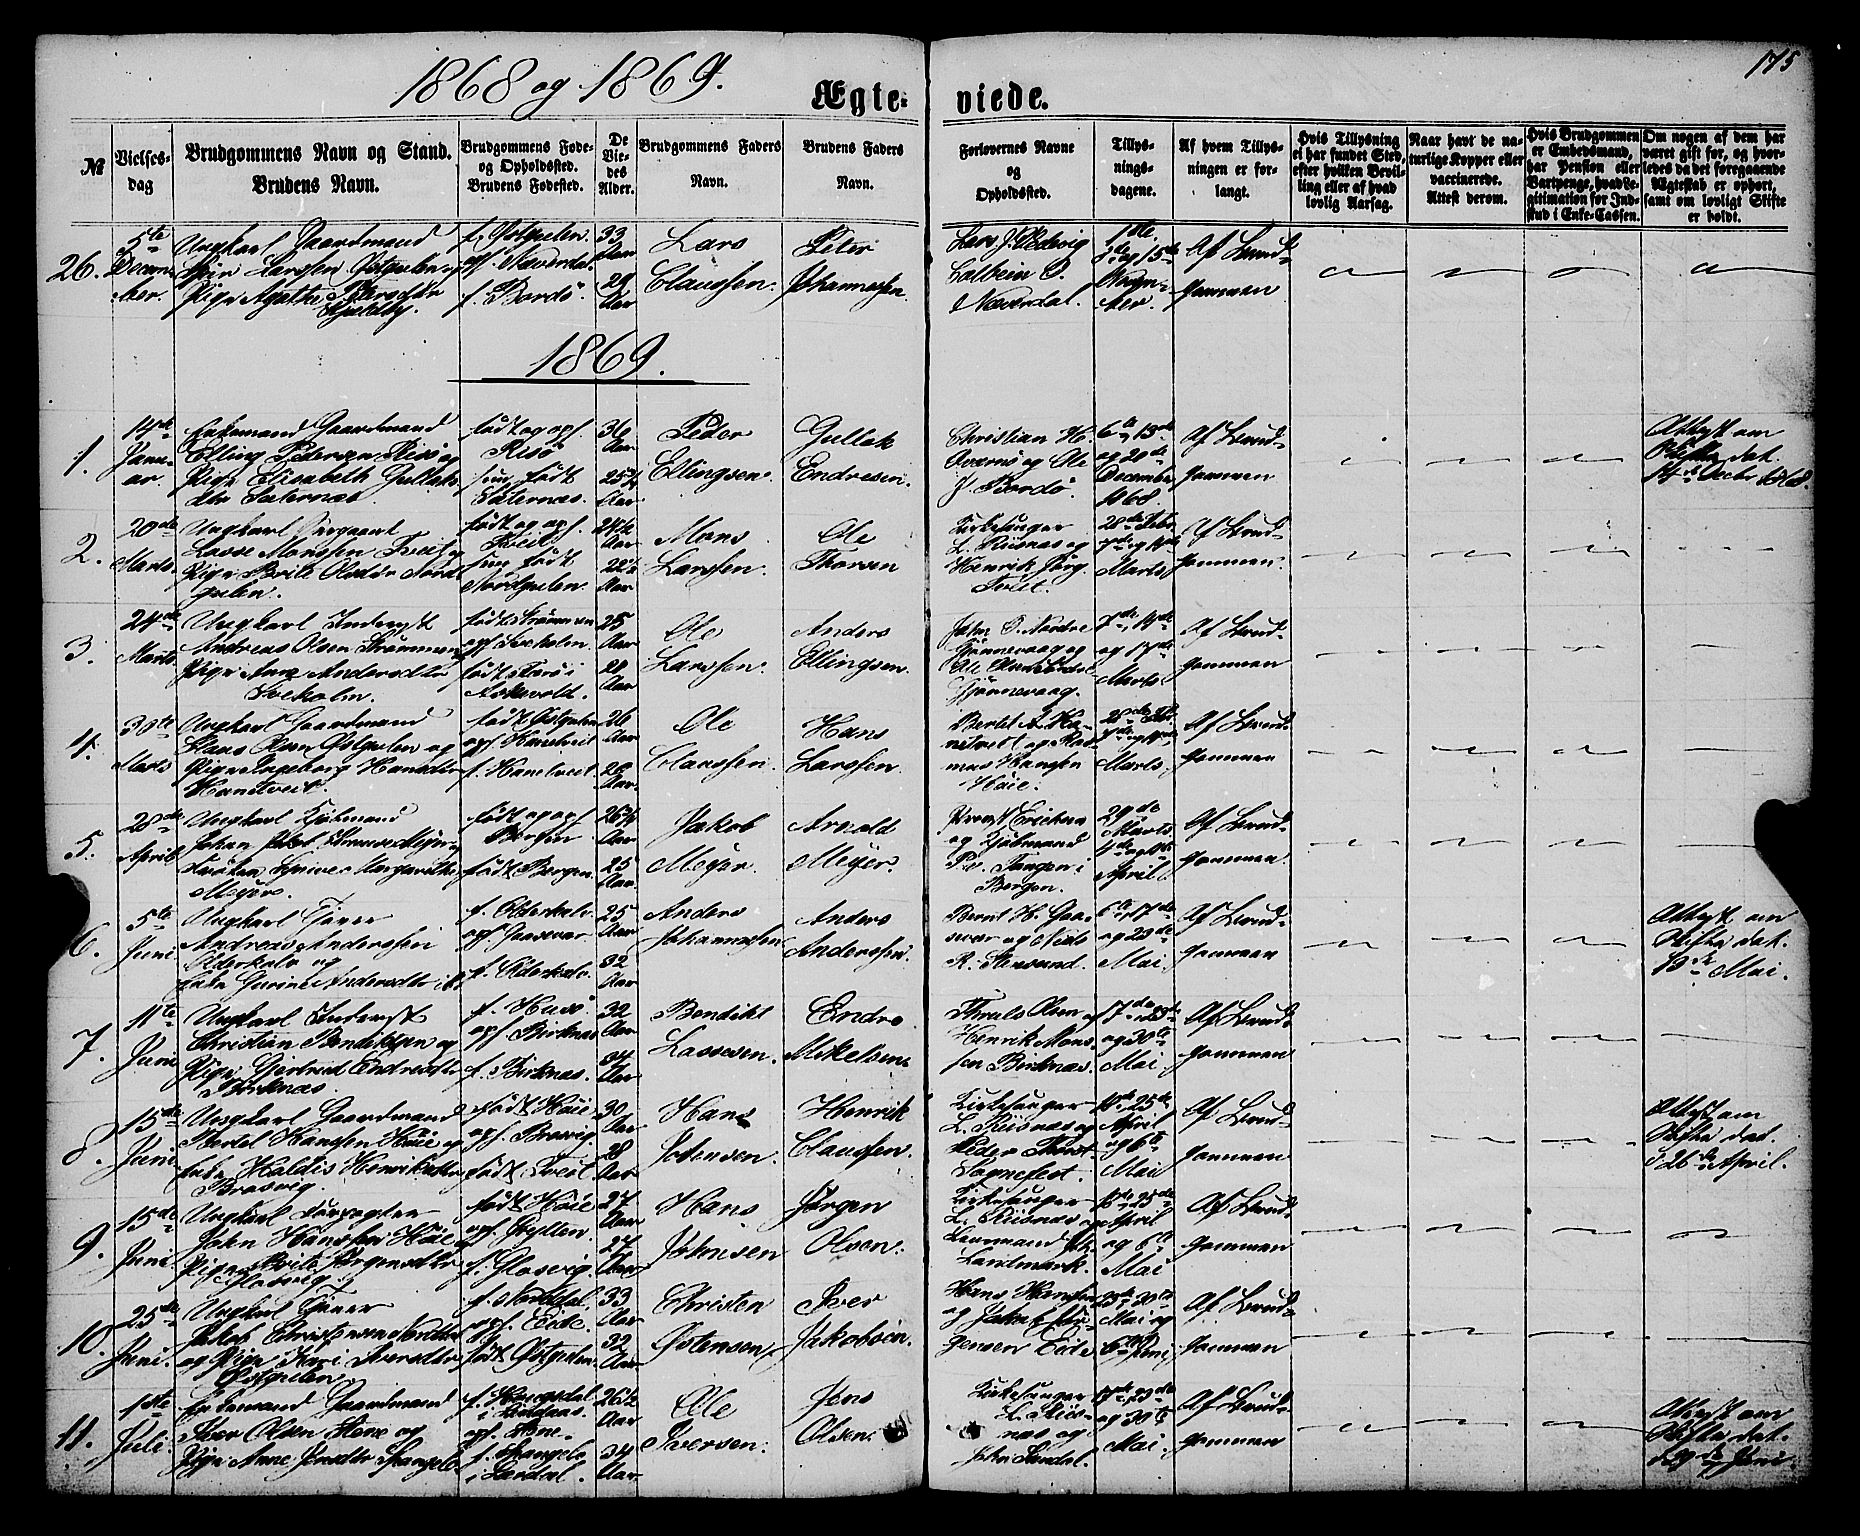 175
1868 og 1869.
Ægteviede.
№
Vielses-
dag
Brudgommens Navn og Stand.
Brudens Navn.
Brudgommens Føde-
og Opholdssted.
Brudens Fødested.
De
Vie-
des
Alder.
Brudgommens Faders
Navn.
Brudens Faders
Navn.
Forlovernes Navne
og
Opholdssted.
Tillys-
nings-
dagene.
Af hvem Tillys-
ningen er for-
langt.
Hvis Tillysning
ei har fundet Sted,
efter hvilken Bevil-
ling eller af hvad
lovlig Aarsag.
Naar havt de na-
turlige Kopper eller
vaccinerede.
Attest derom.
Hvis Brudgommen
er Embedsmand,
har Pension eller
Vartpenge, hvad Le-
gitimation for Ind-
skud i Enke-Cassen.
Om nogen af dem har
været gift før, og hvor-
ledes da det foregaaende
Ægteskab er ophørt,
samt om lovligt Skifte
er holdt.
26.
5te
Decem-
ber.
Ungkarl Gaardmand
Larssen Østgulen
Pige Agathe Petersdtr
f. Østgulen
op.
f. Bordø.
33
Aar
29
Aar
Lars
Claussen.
Peter
Johannessen.
Lars J.
Nævərdal.
1ste
8de og 15de
Novem-
ber.
Af Brud-
gommen
1869.
1.
14de
Janu-
ar.
Enkemand Gaardmand
Elling Pedersen Risø og
Pige Elisabeth Gullak-
dtr Sæternæs.
født og op.
Risø
født
Sæternæs.
36
Aar
25¾
Aar
Peder
Ellingsen.
Gullak
Endresen.
Christian H.
Qværnø og Ole
J. Bordø.
6te, 13de
og 20de
December
1868.
Af Brud-
gommen
Attest om
Skifte dat.
14de Decbr 1868.
2.
20de
Marts
Ungkarl Sergeant
Lasse Monssen Tveit og
Pige Brite Olsdtr Nord-
gulen.
født og op.
Tveit
født
Nordgulen.
24½
Aar
22½
Aar
Mons
Larssen.
Ole
Thorsen
Kirkesanger
L. Riisnæs og
Henrik Jørg.
Tveit.
28de Febr.
7de og 14de
Marts
Af Brud-
gommen.
3.
24de
Marts.
Ungkarl Inderst
Andreas Olsen Strømmen og
Pige Ane Andersdtr
født Strømmen
født
Askevold.
25
Aar
28
Aar.
Ole
Larssen.
Anders
Ellingsen.
John O. Nordre
Hjønnevaag og
Ole
Hjønnevaag.
7de, 14de
og
Marts.
Af Brud-
gommen
4.
30te
Marts
Ungkarl Gaardmand
Hans Olsen Østgulen og
Pige Ingeborg Hansdtr
Hantveit.
født Østgulen
op. Hantveit
f. Hantveit
26
Aar
20
Aar.
Ole
Claussen.
Hans
Larssen.
Bertel A. Ha-
ntveit og Ras-
mus Hanssen
Høie.
28de Febr.
7de og 14de
Marts
Af Brud-
gommen
5.
28de
April
Ungkarl Kjøbmand
Johan Jakob Meyer og
Frøken Margarethe
Meyer.
født og op.
Bergen
født Bergen.
26¾
Aar
25
Aar.
Jakob
Meyer
Arnold
Meyer.
Provst Erichsen
og Kjøbmand
P. Tangen i
Bergen.
29de
Marts
4de og
April.
Af Brud-
gommen.
6.
5te
Juni
Ungkarl
Andreas Anderssen
Olderkalv og
Enke Gurine Andersdtr ib.
f. Olderkalv
op. Gaasvær
f. Olderkalv.
25
Aar.
32
Aar
Anders
Johannessen
Anders
Anderssen.
Bernt H. Gaa-
svær og Nils
R. Stensund.
6te, 17de
og 23de
Mai
Af Brud-
gommen
Attest om
Skifte dat.
13de Mai.
7.
11te
Juni
Ungkarl Inderst
Christian Bendiksen og
Pige Gjertrud Endresdtr
Birknæs
f. Husø
op. Birknæs
f. Birknæs.
32
Aar
34
Aar
Bendikt
Lassesen.
Endre
Mikelsen.
Thrals Olsen og
Henrik Mons-
sen Birknæs.
17de, 23de
og 30te
Mai
Af Brud-
gommen
8.
15de
Juni
Ungkarl Gaardmand
Bertel Hanssen Høie og
Enke Haldis Henriksdtr
Brosvig.
født Høie
op. Brosvig.
født Tveit
30
Aar
28
Aar
Hans
Johnsen.
Henrik
Claussen.
Kirkesanger
L. Riisnæs og
Peder
Sognefest.
18de, 25de
April
og 6te
Mai
Af Brud-
gommen
Attest om
Skifte dat.
d. 26de April.
9.
15de
Juni
Ungkarl Forpagter
John Hanssen Høie og
Pige Brite Jørgensdtr
Glosvig
født Høie
op. Hyllen.
f. Glosvig.
27
Aar.
27
Aar
Hans
Johnsen
Jørgen
Olsen.
Kirkesanger
L. Riisnæs og
Lensmand
Landmark.
18de, 25de
April
og 6te
Mai
Af Brud-
gommen
10.
25de
Juni.
Ungkarl
Jakob Christensen
og Pige Kari Iversdtr
Østgulen
op. Eide.
født Østgulen
33
Aar
32
Aar
Christen
Østensen
Iver
Jakobsen.
Hans Hanssen
og John
gensen Eide
23de, 30te
Mai og
6te Juni
Af Brud-
gommen
11.
1ste
Juli.
Enkemand Gaardmand
Iver Olsen Stene og
Pige Anne Jensdtr
f. Haugsdal
i Lindaas
op. Stene.
i Lærdal.
26½
Aar
34
Aar
Ole
Iversen.
Jens
Olsen.
Kirkesanger
L. Riis-
næs og
John
17de, 23de
og 30te
Mai.
Af Brud-
gommen
Attest om
Skifte dat.
d. 29de Juni.